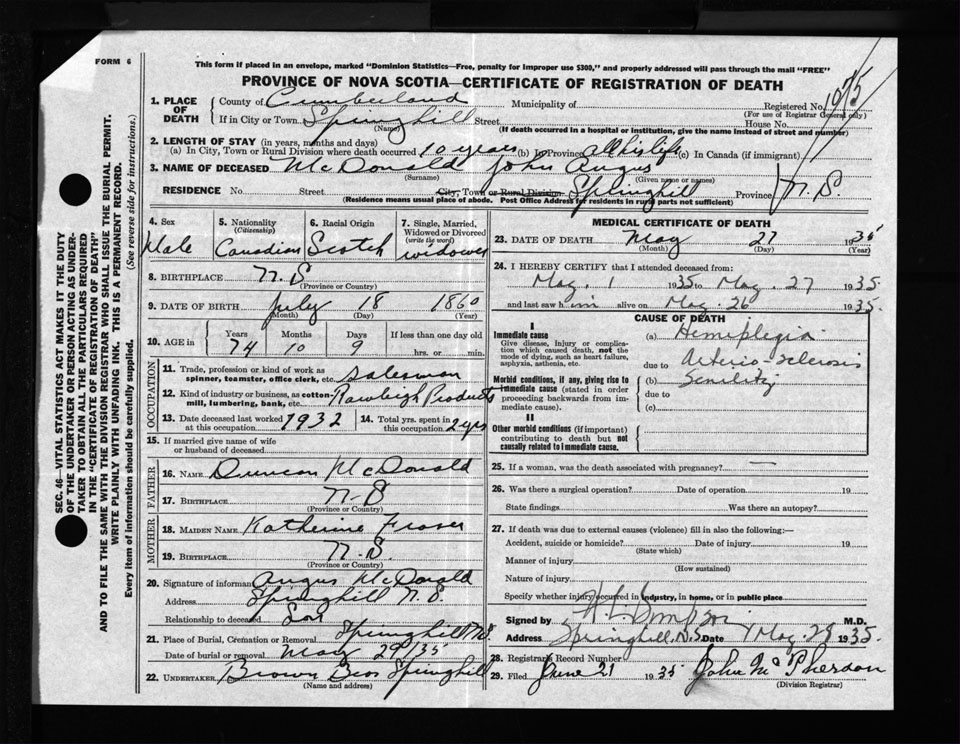 FORM 6
This form if placed in an envelope, marked "Dominion Statistics—Free, penalty for improper use $300," and properly addressed will pass through the mail "FREE"
PROVINCE OF NOVA SCOTIA—CERTIFICATE OF REGISTRATION OF DEATH
SEC. 46—VITAL STATISTICS ACT MAKES IT THE DUTY
OF THE UNDERTAKER OR PERSON ACTING AS UNDER-
TAKER TO OBTAIN ALL THE PARTICULARS REQUIRED
IN THE "CERTIFICATE OF REGISTRATION OF DEATH"
AND TO FILE THE SAME WITH THE DIVISION REGISTRAR WHO SHALL ISSUE THE BURIAL PERMIT.
WRITE PLAINLY WITH UNFADING INK. THIS IS A PERMANENT RECORD.
Every item of information should be carefully supplied. (See reverse side for instructions.)
1. PLACE OF DEATH County of Cumberland Municipality of Registered No. 1075
(For use of Registrar General only)
If in City or Town Springhill Street House No.
(Name) (If death occurred in a hospital or institution, give the name instead of street and number)
2. LENGTH OF STAY (in years, months and days)
(a) In City, Town or Rural Division where death occurred 10 years (b) In Province all his life (c) In Canada (if immigrant)
3. NAME OF DECEASED McDonald John Angus
(Surname) (Given name or names)
RESIDENCE No. Street City, Town or Rural Division Springhill Province N.S.
(Residence means usual place of abode. Post Office Address for residents in rural parts not sufficient)
4. Sex Male
5. Nationality (Citizenship) Canadian
6. Racial Origin Scotch
7. Single, Married, Widowed or Divorced (write the word) widower
8. BIRTHPLACE N.S
(Province or Country)
9. DATE OF BIRTH July 18 1860
(Month) (Day) (Year)
10. AGE in Years 74 Months 10 Days 9 If less than one day old hrs. or min.
OCCUPATION
11. Trade, profession or kind of work as spinner, teamster, office clerk, etc. Salesman
12. Kind of industry or business, as cotton-mill, lumbering, bank, etc. Rawleigh Products
13. Date deceased last worked at this occupation 1932
14. Total yrs. spent in this occupation 2 yrs
15. If married give name of wife or husband of deceased
FATHER
16. NAME Duncan McDonald
17. BIRTHPLACE N-S
(Province or Country)
MOTHER
18. MAIDEN NAME Katherine Fraser
19. BIRTHPLACE N.S.
(Province or Country)
20. Signature of informant Angus McDonald
Address Springhill N.S.
Relationship to deceased Son
21. Place of Burial, Cremation or Removal Springhill NS
Date of burial or removal May 29/35
22. UNDERTAKER Brown Bros Springhill
(Name and address)
MEDICAL CERTIFICATE OF DEATH
23. DATE OF DEATH May 27 1935
(Month) (Day) (Year)
24. I HEREBY CERTIFY that I attended deceased from:
May. 1 1935 to May. 27 1935
and last saw him alive on May. 26 1935.
CAUSE OF DEATH
I
Immediate cause
Give disease, injury or complication which caused death, not the mode of dying, such as heart failure, asphyxia, asthenia, etc.
(a) Hemiplegia
due to Arterio-sclerosis
Morbid conditions, if any, giving rise to immediate cause (stated in order proceeding backwards from immediate cause).
(b) Senility
due to
(c)
II
Other morbid conditions (if important) contributing to death but not causally related to immediate cause.
25. If a woman, was the death associated with pregnancy? —
26. Was there a surgical operation? Date of operation 19
State findings Was there an autopsy?
27. If death was due to external causes (violence) fill in also the following:—
Accident, suicide or homicide? Date of injury 19
(State which)
Manner of injury
(How sustained)
Nature of injury
Specify whether injury occurred in industry, in home, or in public place
Signed by M.D.
Address Springhill, N.S. Date May 28 1935.
28. Registrar's Record Number
29. Filed June 21 1935 John McPherson
(Division Registrar)